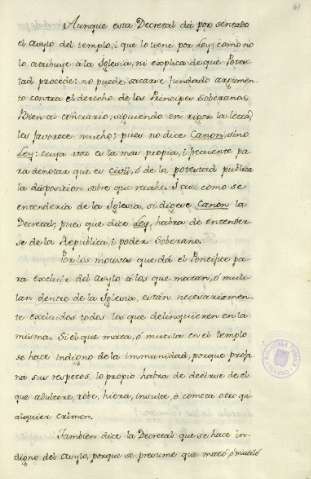 Aunque esta Decretal dá por sentado
el asylo del templo, i que lo tiene por Ley; como no
lo atribuye à la Iglesia, ni explica de que Potes-
tad procede: no puede sacarse fundado argumen-
to contra el derecho de los Principes Soberanos.
Bien al contrario, siguiendo en rigor la letra,
les favorece mucho; pues no dice Canon, sino
Ley: cuya voz es la mas propia, i frecuente pa-
ra denotar que es civil, ó de la potestad publica
la disposicion sobre que recahe. I asi como se
entenderia de la Iglesia, si dixese Canon la
Decretal; pues que dice Ley, habrá de entender-
se de la Republica, i poder Soberano.
Por los motivos que dá el Pontifice pa-
ra excluir del asylo à los que matan, ó muti-
lan dentro de la Iglesia, estàn necesariamen-
te excluidos todos los que delinquieren en la
misma. Si el que mata, ó mutila en el templo
se hace indigno de la immunidad, porque profa-
na sus respetos: lo propio habrá de decirse de el
que adultere, robe, hiera, insulte, ó cometa otro qu-
alquier crimen.
Tambien dice la Decretal que se hace in-
digno del asylo, porque se presume que mató ó mutiló